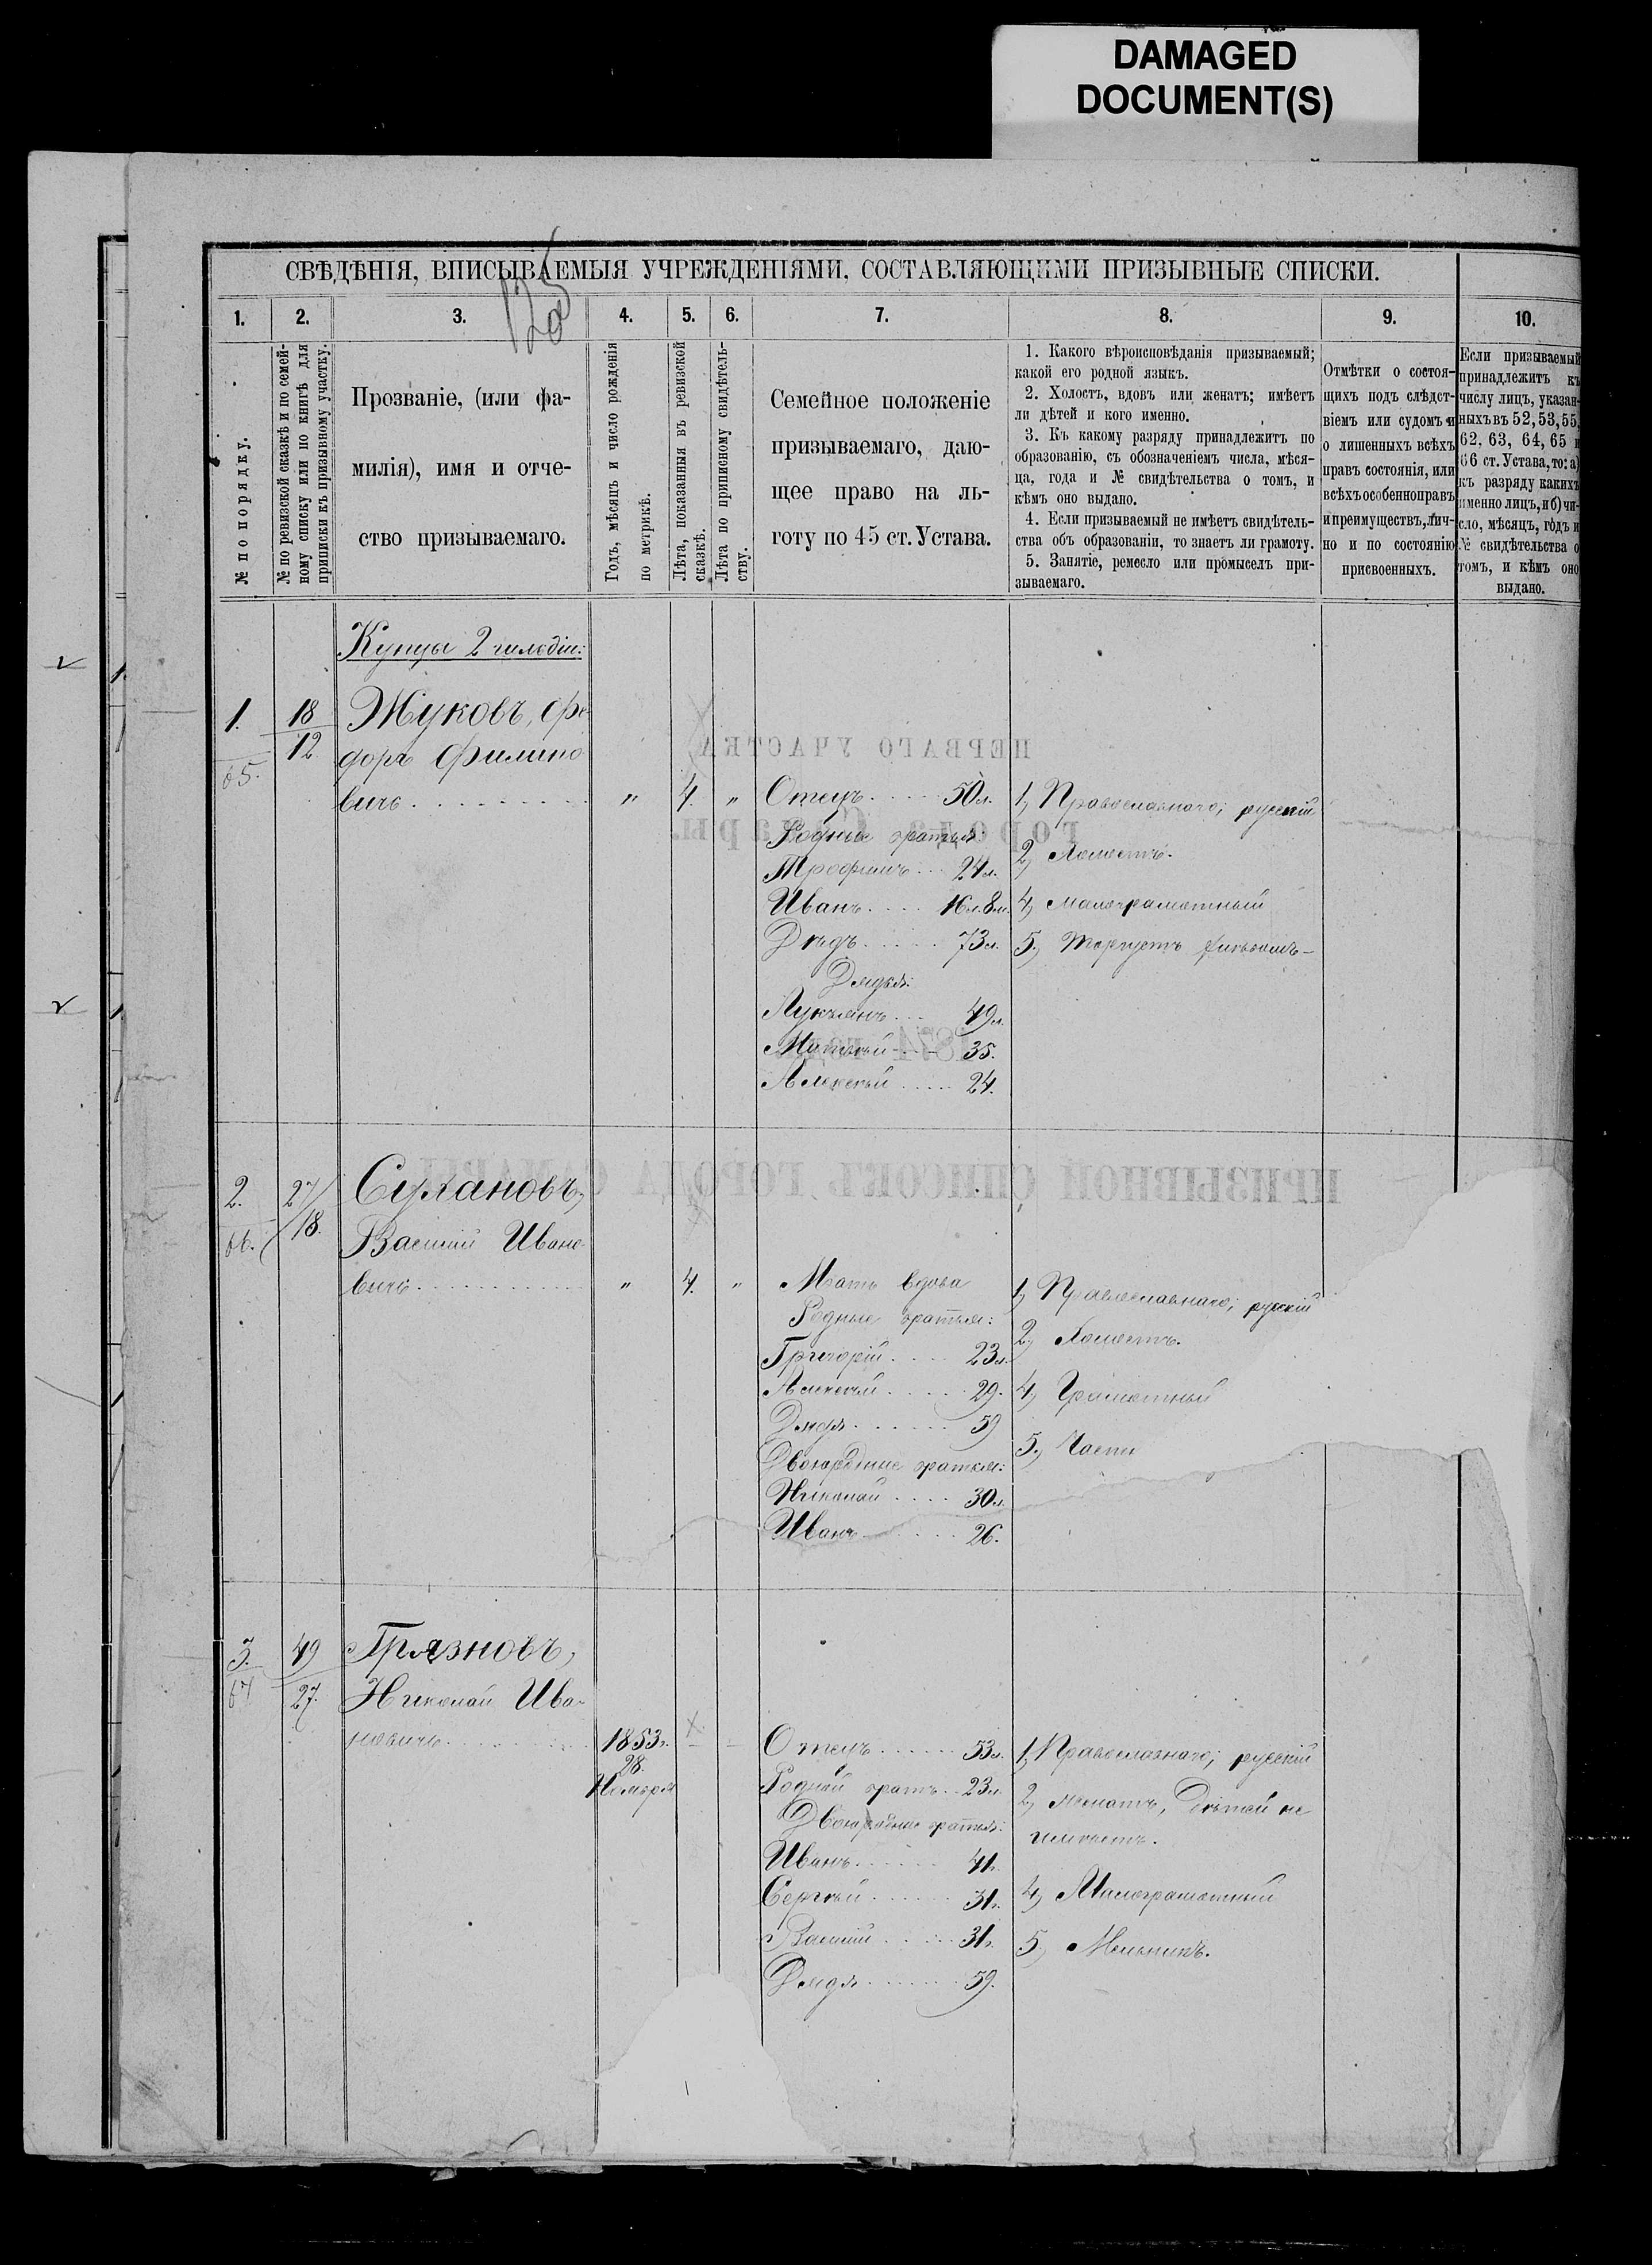 DAMAGED
DOCUMENT(S)
СВѢДѢНІЯ, ВПИСЫВАЕМЫЯ УЧРЕЖДЕНІЯМИ, СОСТАВЛЯЮЩИМИ ПРИЗЫВНЫЕ СПИСКИ.
1.
2.
3.
4.
5.
6.
7.
8.
9.
10.
№ по порядку.
№ по ревизской сказкѣ и по семей-
ному списку или по книгѣ для
приписки къ призывному участку.
Прозваніе, (или фа-
милія), имя и отче-
ство призываемаго.
Годъ, мѣсяцъ и число рожденія
по метрикѣ.
Лѣта, показанныя въ ревизской
сказкѣ.
Лѣта по приписному свидѣтель-
ству.
Семейное положеніе
призываемаго, даю-
щее право на ль-
готу по 45 ст. Устава.
1. Какого вѣроисповѣданія призываемый;
какой его родной языкъ.
2. Холостъ, вдовъ или женатъ; имѣетъ
ли дѣтей и кого именно.
3. Къ какому разряду принадлежитъ по
образованію, съ обозначеніемъ числа, мѣся-
ца, года и № свидѣтельства о томъ, и
кѣмъ оно выдано.
4. Если призываемый не имѣетъ свидѣтель-
ства объ образованіи, то знаетъ ли грамоту.
5. Занятіе, ремесло или промыселъ при-
зываемаго.
Отмѣтки о состоя-
щихъ подъ слѣдст-
віемъ или судомъ и
о лишенныхъ всѣхъ
правъ состоянія, или
всѣхъ особенно правъ
и преимуществъ, лич-
но и по состоянію
присвоенныхъ.
Если призываемый
принадлежитъ къ
числу лицъ, указан-
ныхъ въ 52, 53, 55,
62, 63, 64, 65 и
66 ст. Устава, то: а)
къ разряду какихъ
именно лицъ, и б) чи-
сло, мѣсяцъ, годъ и
№ свидѣтельства о
томъ, и кѣмъ оно
выдано.
Купцы 2 гильдіи:
1.
65.
18
12
Жуковъ, Фе
доръ Филипо
вичъ
"
4.
"
Отецъ 50 л.
Родные братья
Трофимъ 24 л.
Иванъ 16 л. 8 м.
Дѣдъ 73 л.
Дядья:
Лукьянъ 49 л.
Матвѣй 35.
Алексѣй 24.
1, Православнаго; русскій
2, Холостъ.
4, малограмотный
5, Торгуетъ
2.
66.
27
18.
Сухановъ,
Василій Ивано
вичъ
"
4.
"
Мать вдова
Родные братья:
Григорій 23 л.
Алексѣй 29.
Дядя 59
Двоюродные братья:
Николай 30 л.
Иванъ 26.
1, Православнаго; русскій
2, Холостъ.
4, Грамотный
5,
3.
67
49
27.
Грязновъ,
Николай Ива-
новичъ
1853 г.
28.
Ноября
Отецъ 53 л.
Родной братъ 23 л.
Двоюродные братья:
Иванъ 41.
Сергѣй 31.
Василій 31.
Дядя 59.
1, Православнаго; русскій
2, женатъ, дѣтей не
имѣетъ.
4, Малограмотный
5, Мельникъ.
ПЕРВАГО УЧАСТКА
города Самары.
1874 года
ПРИЗЫВНОЙ СПИСОКЪ ГОРОДА САМАРЫ